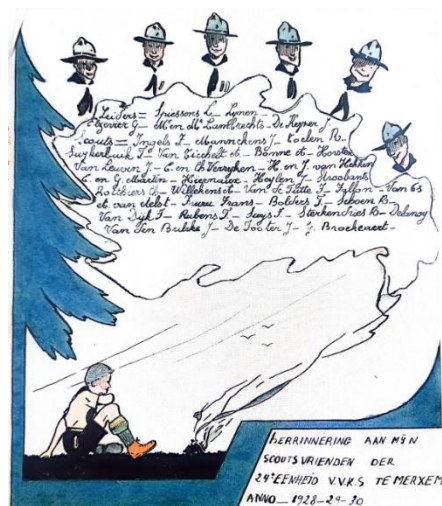 Leiders = Spiessens L. - Lymen -
G - M en Me Lambrechts - De Keyser J
Scouts = Ingels F - Mannekens J - Coelen R -
Suykerbuik J - Van Gichelt - Bonne -
Van Leuven J - C. en Verreyken - H. en J. van Hekken
C. en G. Martin - Heylen J - Stroobants
Willekens - Van de Tatte F - Fallon - Van Es
van Aelst - Frans - Bolders F - Seboen R -
Van Dijk F - Rubens F - Suys F - Sterkendries R - Delanoy
Van Den Bulcke J - De Tooter J - J. Brockaert -
HERRINNERING AAN MYN
SCOUTSVRIENDEN DER
24e EENHEID V.V.K.S TE MERXEM
ANNO - 1928-29-30